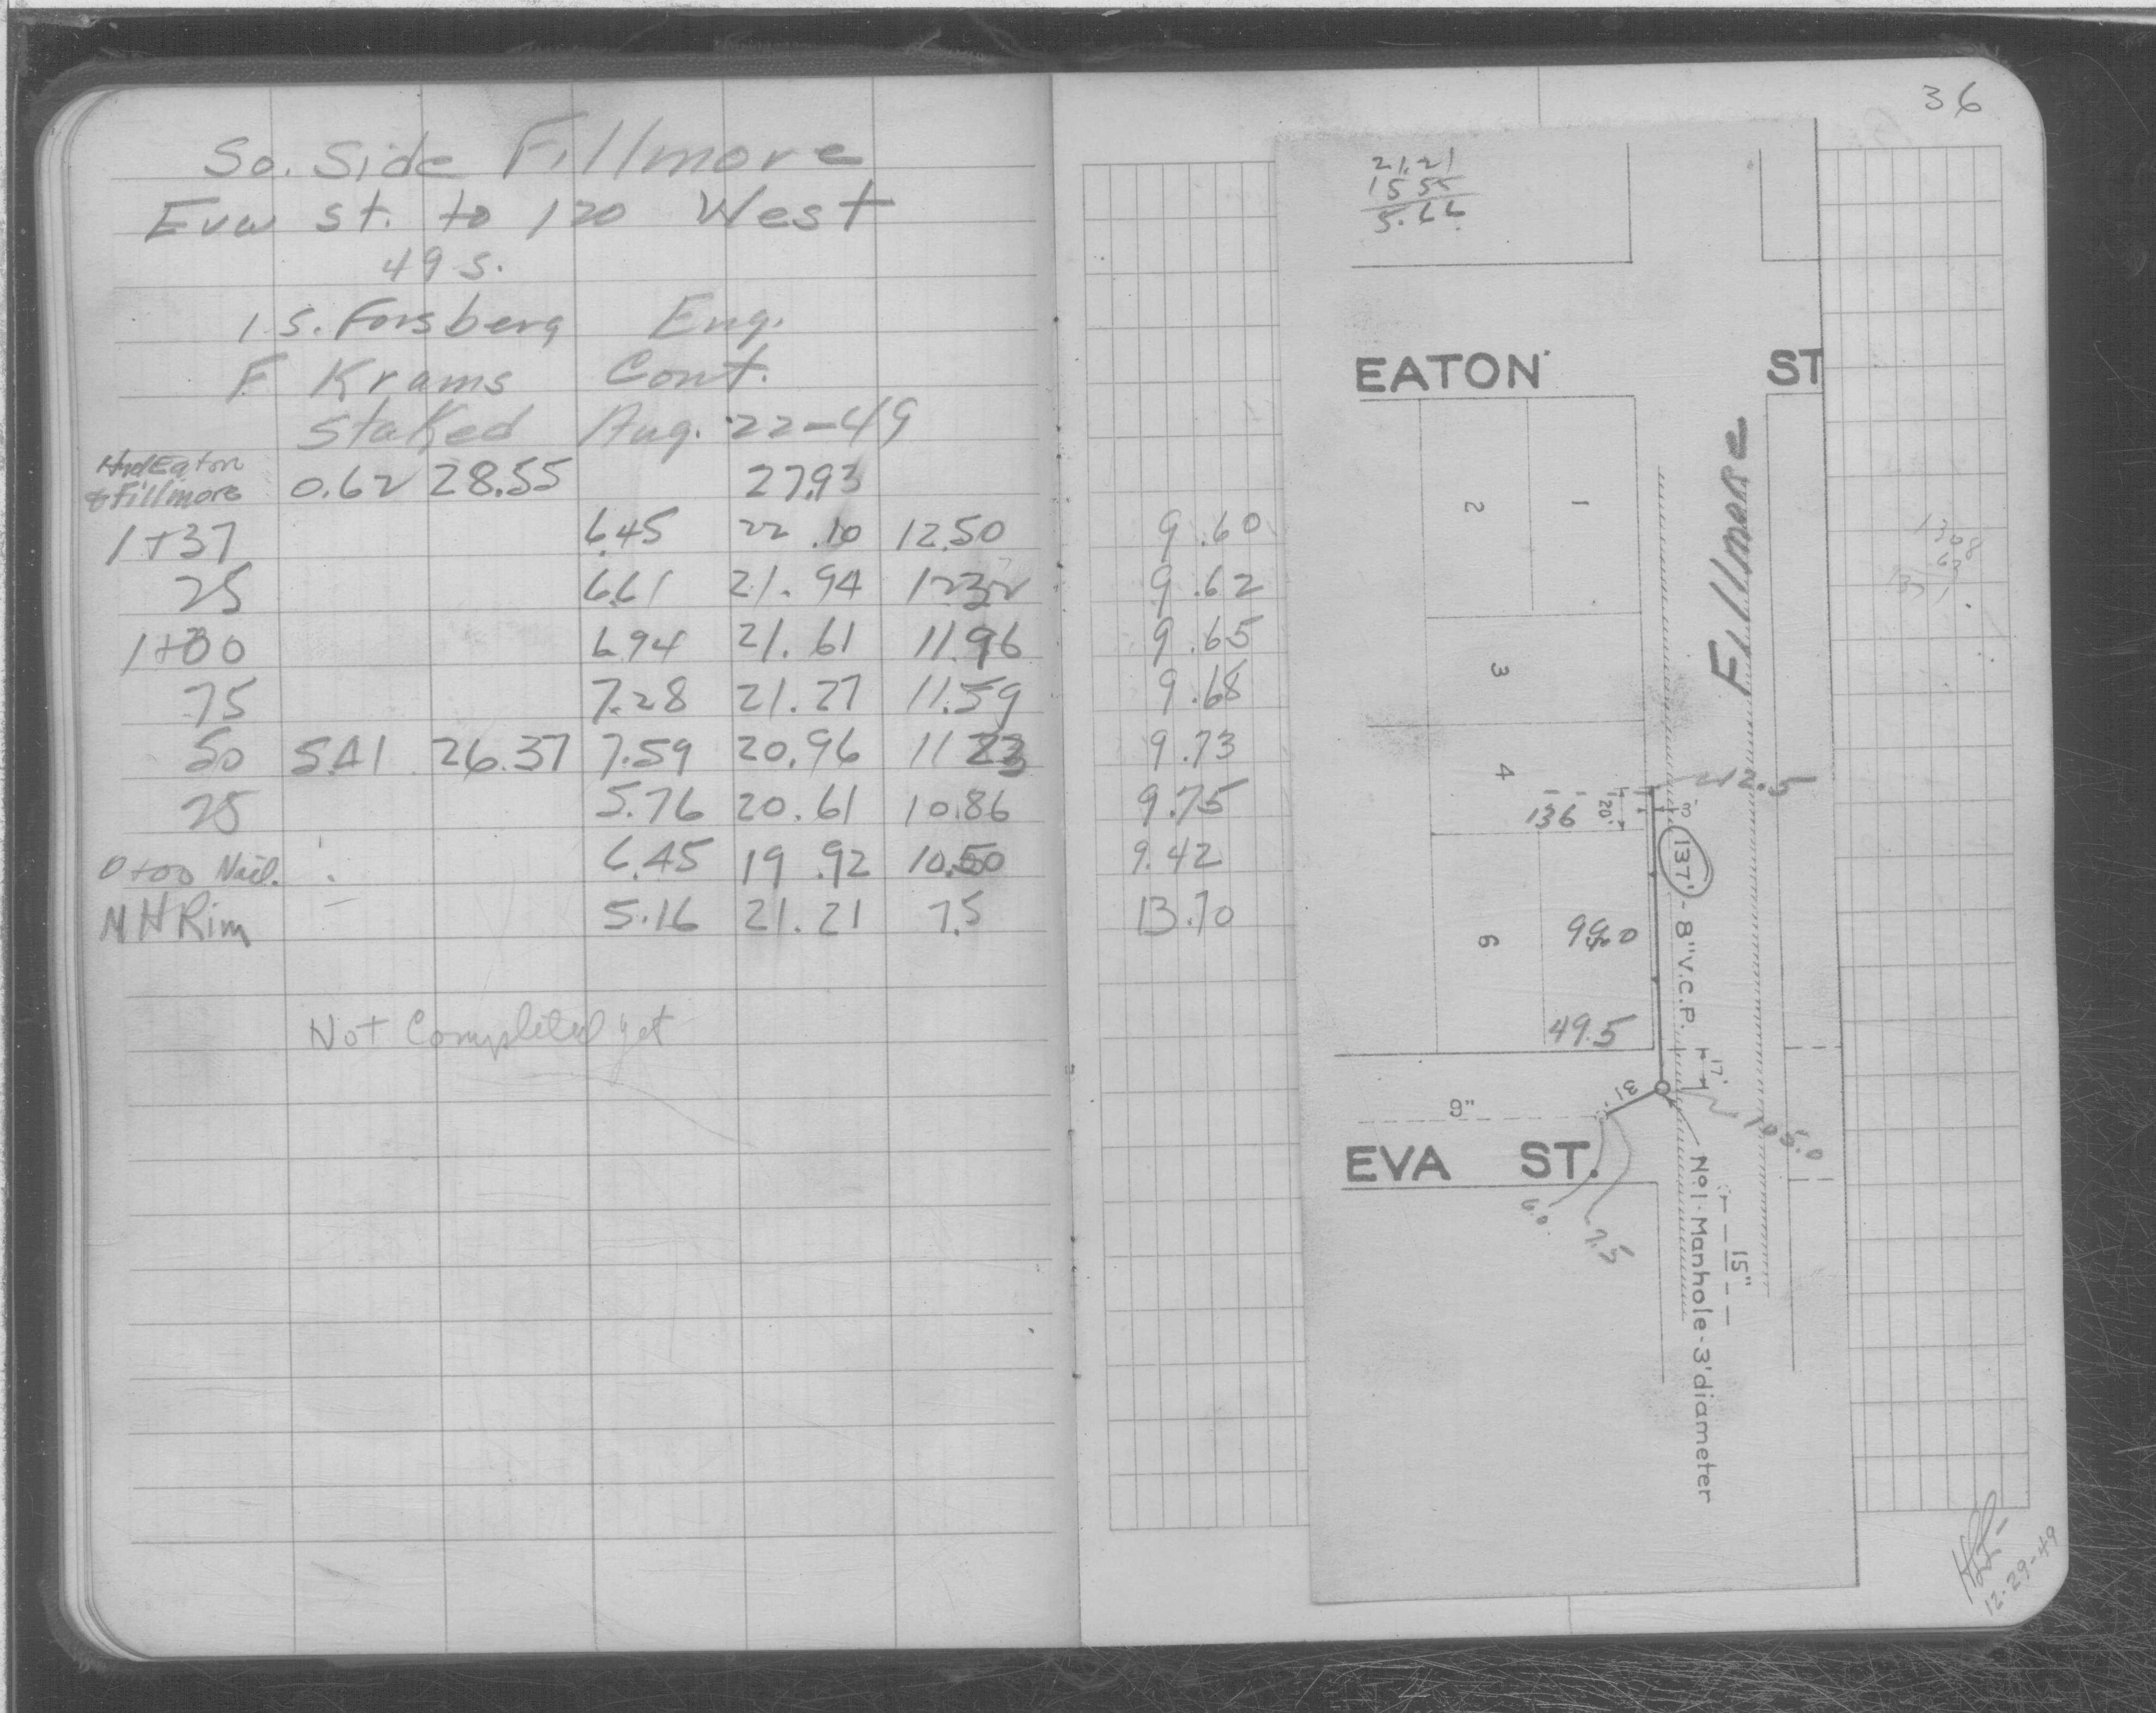 So. Side Fillmore
Eva St. to 120 West
49 S.
I.S. Forsberg Eng.
F Krams Cont.
Staked Aug. 22-49
Hyd Eaton
& Fillmore 0.62 28.55 27.93
1+37 6.45 22.10 12.50 9.60
25 6.61 21.94 12.32 9.62
1+00 6.94 21.61 11.96 9.65
75 7.28 21.27 11.59 9.68
50 5.41 26.37 7.59 20.96 11.23 9.73
25 5.76 20.61 10.86 9.75
0+00 Nail. 6.45 19.92 10.50 9.42
MH Rim 5.16 21.21 7.5 13.70
Not Completed yet
36
21.21
15.55
5.66
EATON ST
Fillmore
1
2
3
4
6
12.5
136
20'
3'
137' - 8" V.C.P.
99.0
49.5
17'
31'
9"
105.0
EVA ST.
6.0
7.5
15"
No 1 - Manhole - 3' diameter
12-29-49